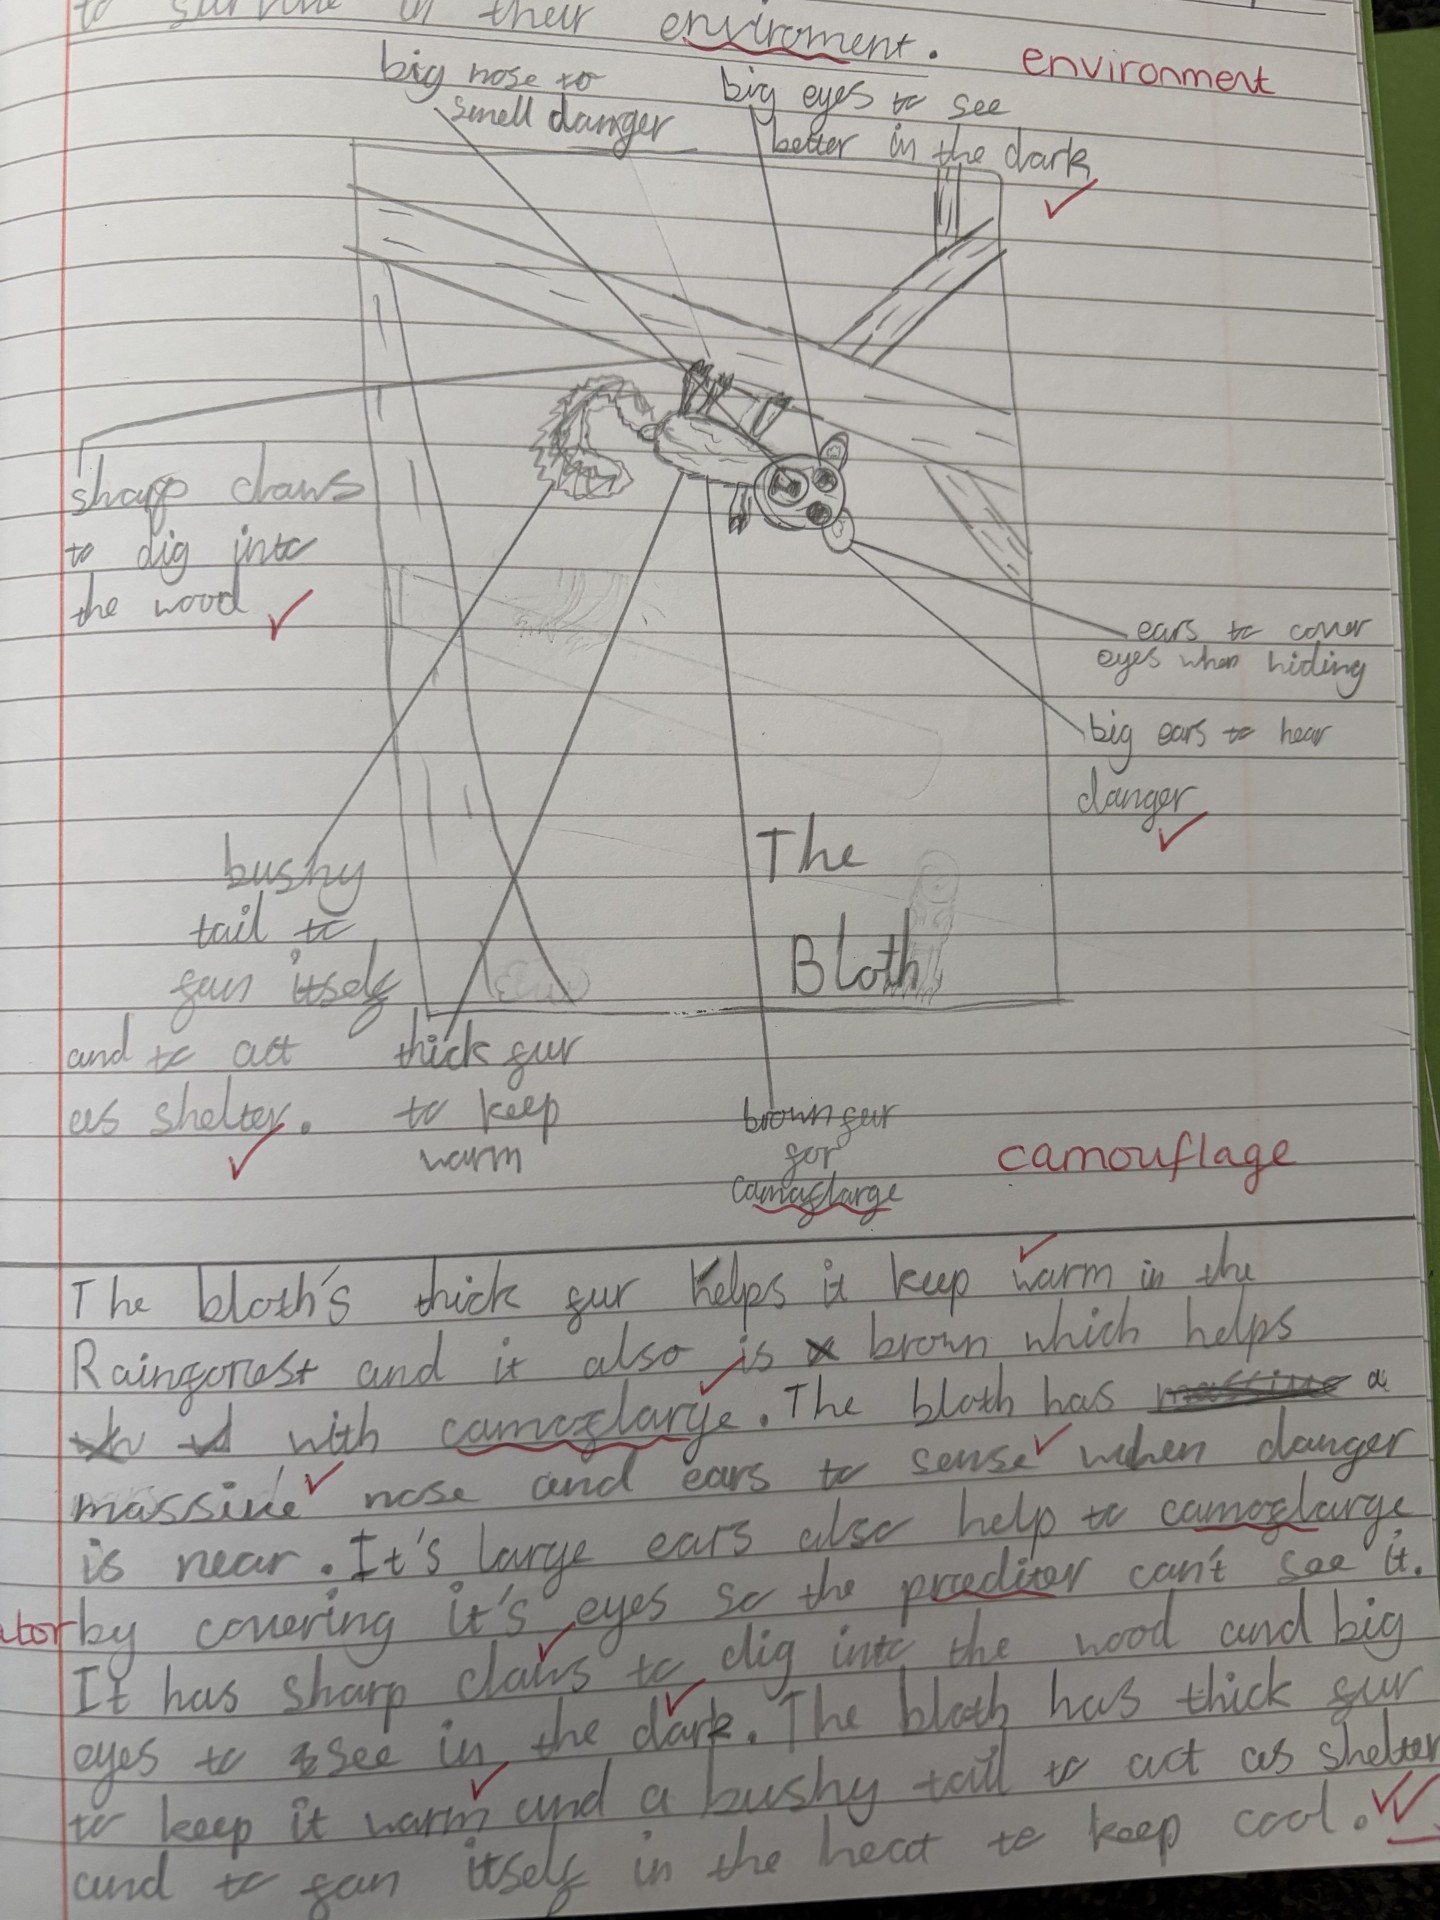 to survive in their enviroment.
environment
big nose to
smell danger
big eyes to see
better in the dark
sharp claws
to dig into
the wood
ears to cover
eyes when hiding
big ears to hear
danger
The
Bloth
bushy
tail to
fan itself
and to act
as shelter.
thick fur
to keep
warm
brown fur
for
camoflarge
camouflage
The bloth's thick fur helps it keep warm in the
Rainforest and it also is brown which helps
with camoflarge. The bloth has massive a
massive nose and ears to sense when danger
is near. It's large ears also help to camoflarge
ator by covering it's eyes so the prediter can't see it.
It has sharp claws to dig into the wood and big
eyes to see in the dark. The bloth has thick fur
to keep it warm and a bushy tail to act as shelter
and to fan itself in the heat to keep cool.